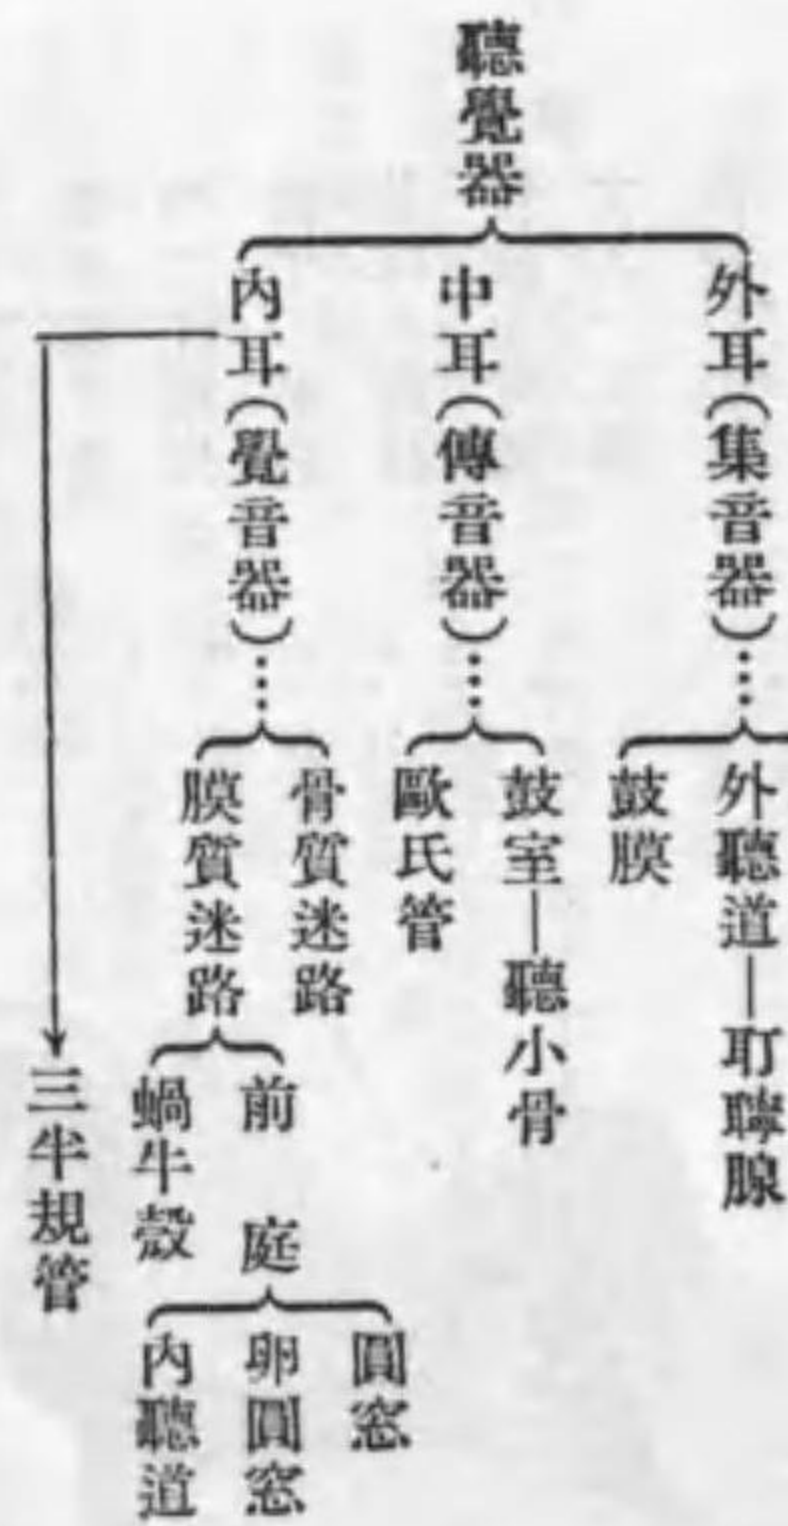 聽覺器
外耳(集音器)…
外聽道—耵聹腺
鼓膜
中耳(傳音器)…
鼓室—聽小骨
歐氏管
內耳(覺音器)…
骨質迷路
膜質迷路
前庭
圓窓
卵圓窓
內聽道
蝸牛殼
三半規管